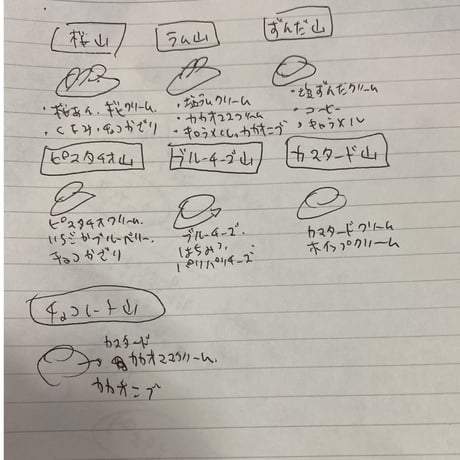 桜山
ラム山
ずんだ山
・桜あん、ギビクリーム
・くるみ、チョコかざり
・塩ラムクリーム
・カカオマスクリーム
・キャラメル、カカオニブ
・塩ずんだクリーム
・コーヒー
・キャラメル
ピスタチオ山
ブルーチーズ山
カスタード山
ピスタチオクリーム
いちごかブルーベリー
チョコかざり
ブルーチーズ
はちみつ
パリパリチーズ
カスタードクリーム
ホイップクリーム
チョコレート山
カスタード
カカオマスクリーム
カカオニブ